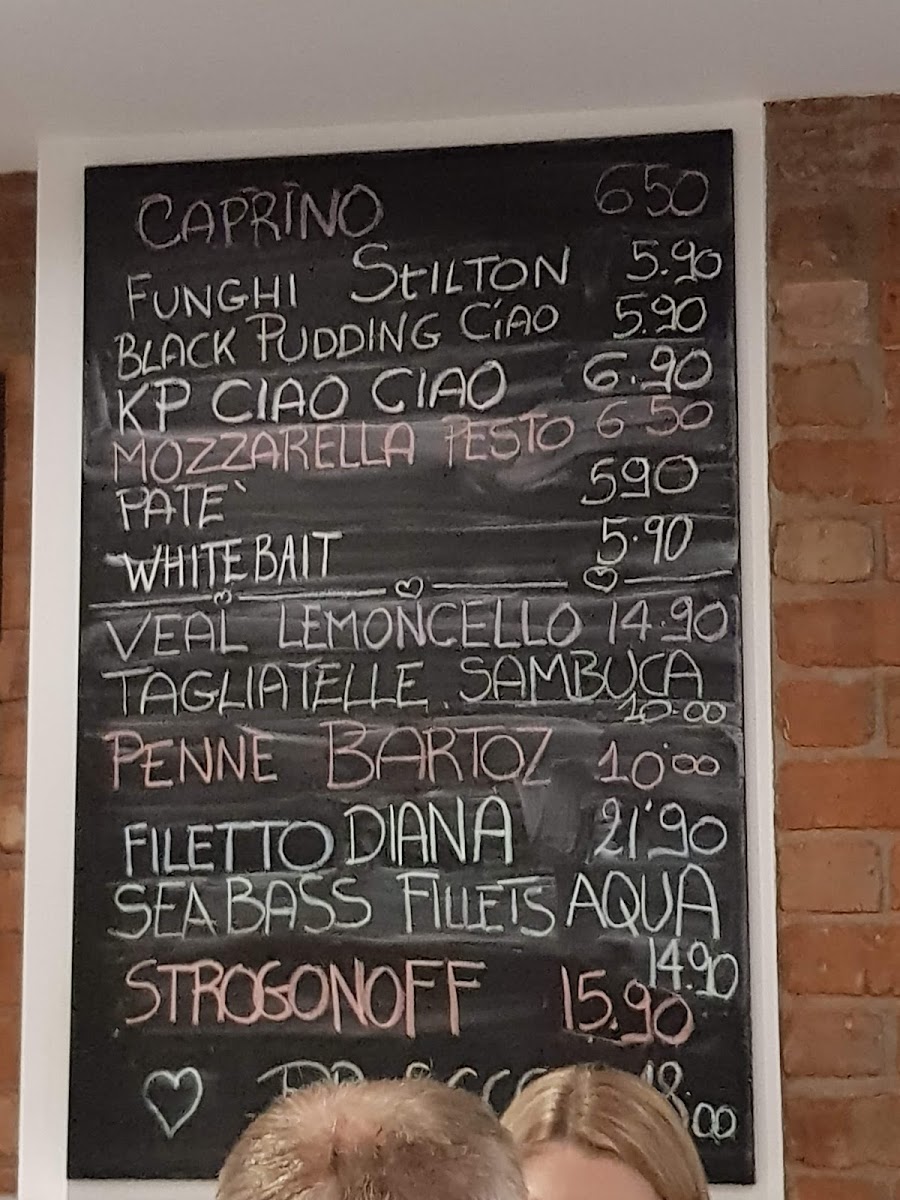 CAPRINO 650
FUNGHI STILTON 5.90
BLACK PUDDING CIAO 5.90
KP CIAO CIAO 6.90
MOZZARELLA PESTO 6 50
PATE` 590
WHITEBAIT 5.90
VEAL LEMONCELLO 14.90
TAGLIATELLE SAMBUCA
10.00
PENNE BARTOZ 10.00
FILETTO DIANA 21.90
SEA BASS FILLETS AQUA
14.90
STROGONOFF 15.90
18.00